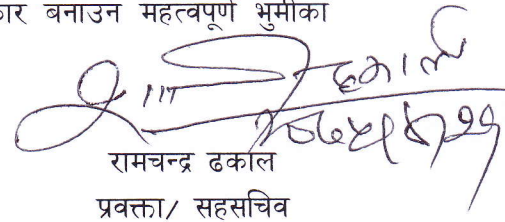 कार बनाउन महत्वपूर्ण भुमीका
ढकाल
रामचन्द्र ढकाल
प्रवक्ता/ सहसचिव